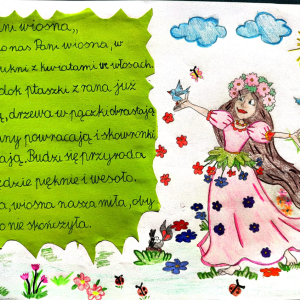 ani wiosna,,
o nas Pani wiosna, w
ukni z kwiatami we włosach.
dok ptaszki z rana już
ą, drzewa w pączki obrastają
any powracają i skowronki
ają. Budzi się przyroda
ędzie pięknie i wesoło.
a, wiosna nasza miła, oby
o nie skończyła.